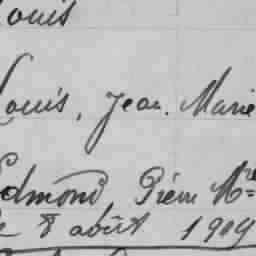 Louis
Louis, Jean. Marie
Edmond Pierre Mie
le 8 août 1909